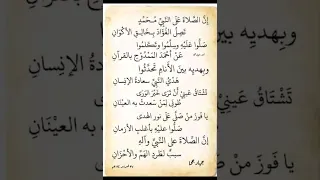 إنَّ الصَّلاةَ عَلى النَّبِيِّ مُحَمَّدٍ
تَصِلُ الفُؤَادَ بِخَالِقِ الأكْوَانِ
صَلُّوا عَلَيْهِ وسَلِّمُوا وتَكَلَّمُوا
عَنْ أحْمَدَ المَمْدُوحِ بالقرآنِ
وبِهديِهِ بينَ الأنامِ تَحَدَّثُوا
هَدْيُ النَّبِي سعادةُ الإنسَانِ
تَشْتَاقُ عَينِيْ أنْ تَرَى خَيْرَ الوَرَى
طُوبى لِمَنْ سَعدتْ به العيْنَانِ
يا فَوزَ مَنْ صَلَّى عَلَى نورِ الهُدى
صَلُّوا عليْهِ بأغلبِ الأزمانِ
إنَّ الصَّلاةَ على النَّبِيِّ وآلِهِ
سببٌ لطَردِ الهَمِّ والأحْزَانِ